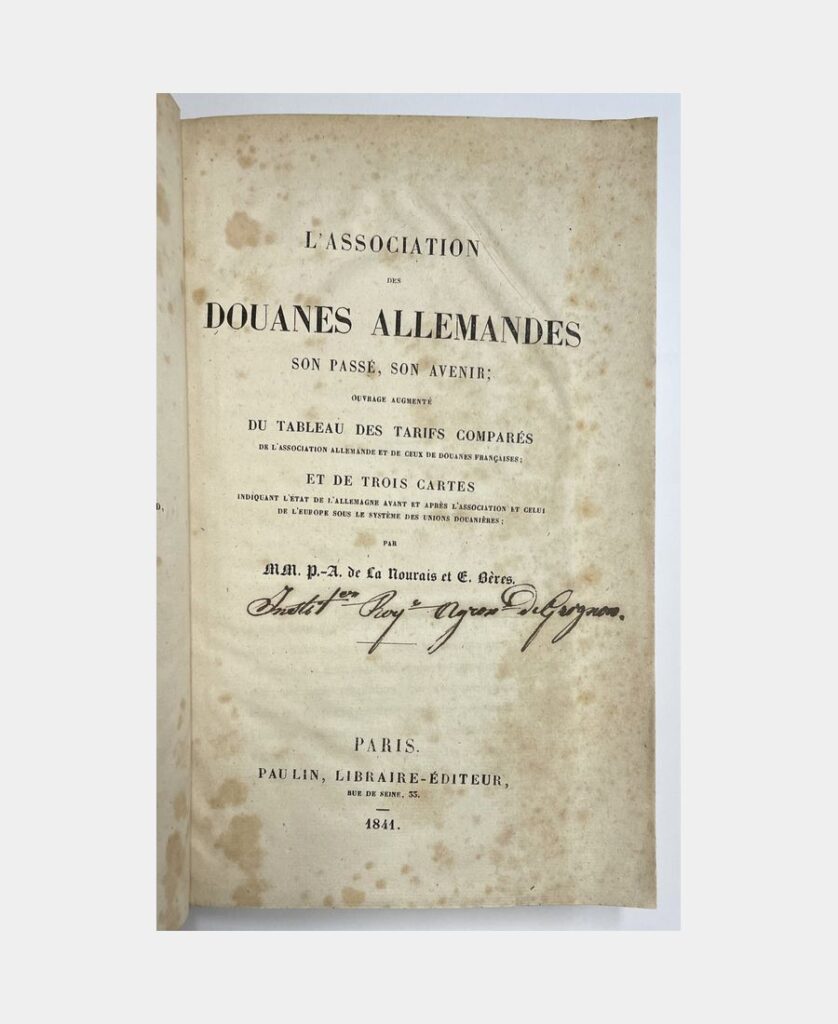 L'ASSOCIATION
DES
DOUANES ALLEMANDES
SON PASSÉ, SON AVENIR;
OUVRAGE AUGMENTÉ
DU TABLEAU DES TARIFS COMPARÉS
DE L'ASSOCIATION ALLEMANDE ET DE CEUX DE DOUANES FRANÇAISES;
ET DE TROIS CARTES
INDIQUANT L'ÉTAT DE L'ALLEMAGNE AVANT ET APRÈS L'ASSOCIATION ET CELUI
DE L'EUROPE SOUS LE SYSTÈME DES UNIONS DOUANIÈRES;
PAR
MM. P.-A. de La Nourais et E. Bères.
Instit^on Roy^e Agron^e De Grignon.
PARIS.
PAULIN, LIBRAIRE-ÉDITEUR,
RUE DE SEINE, 33.
1841.